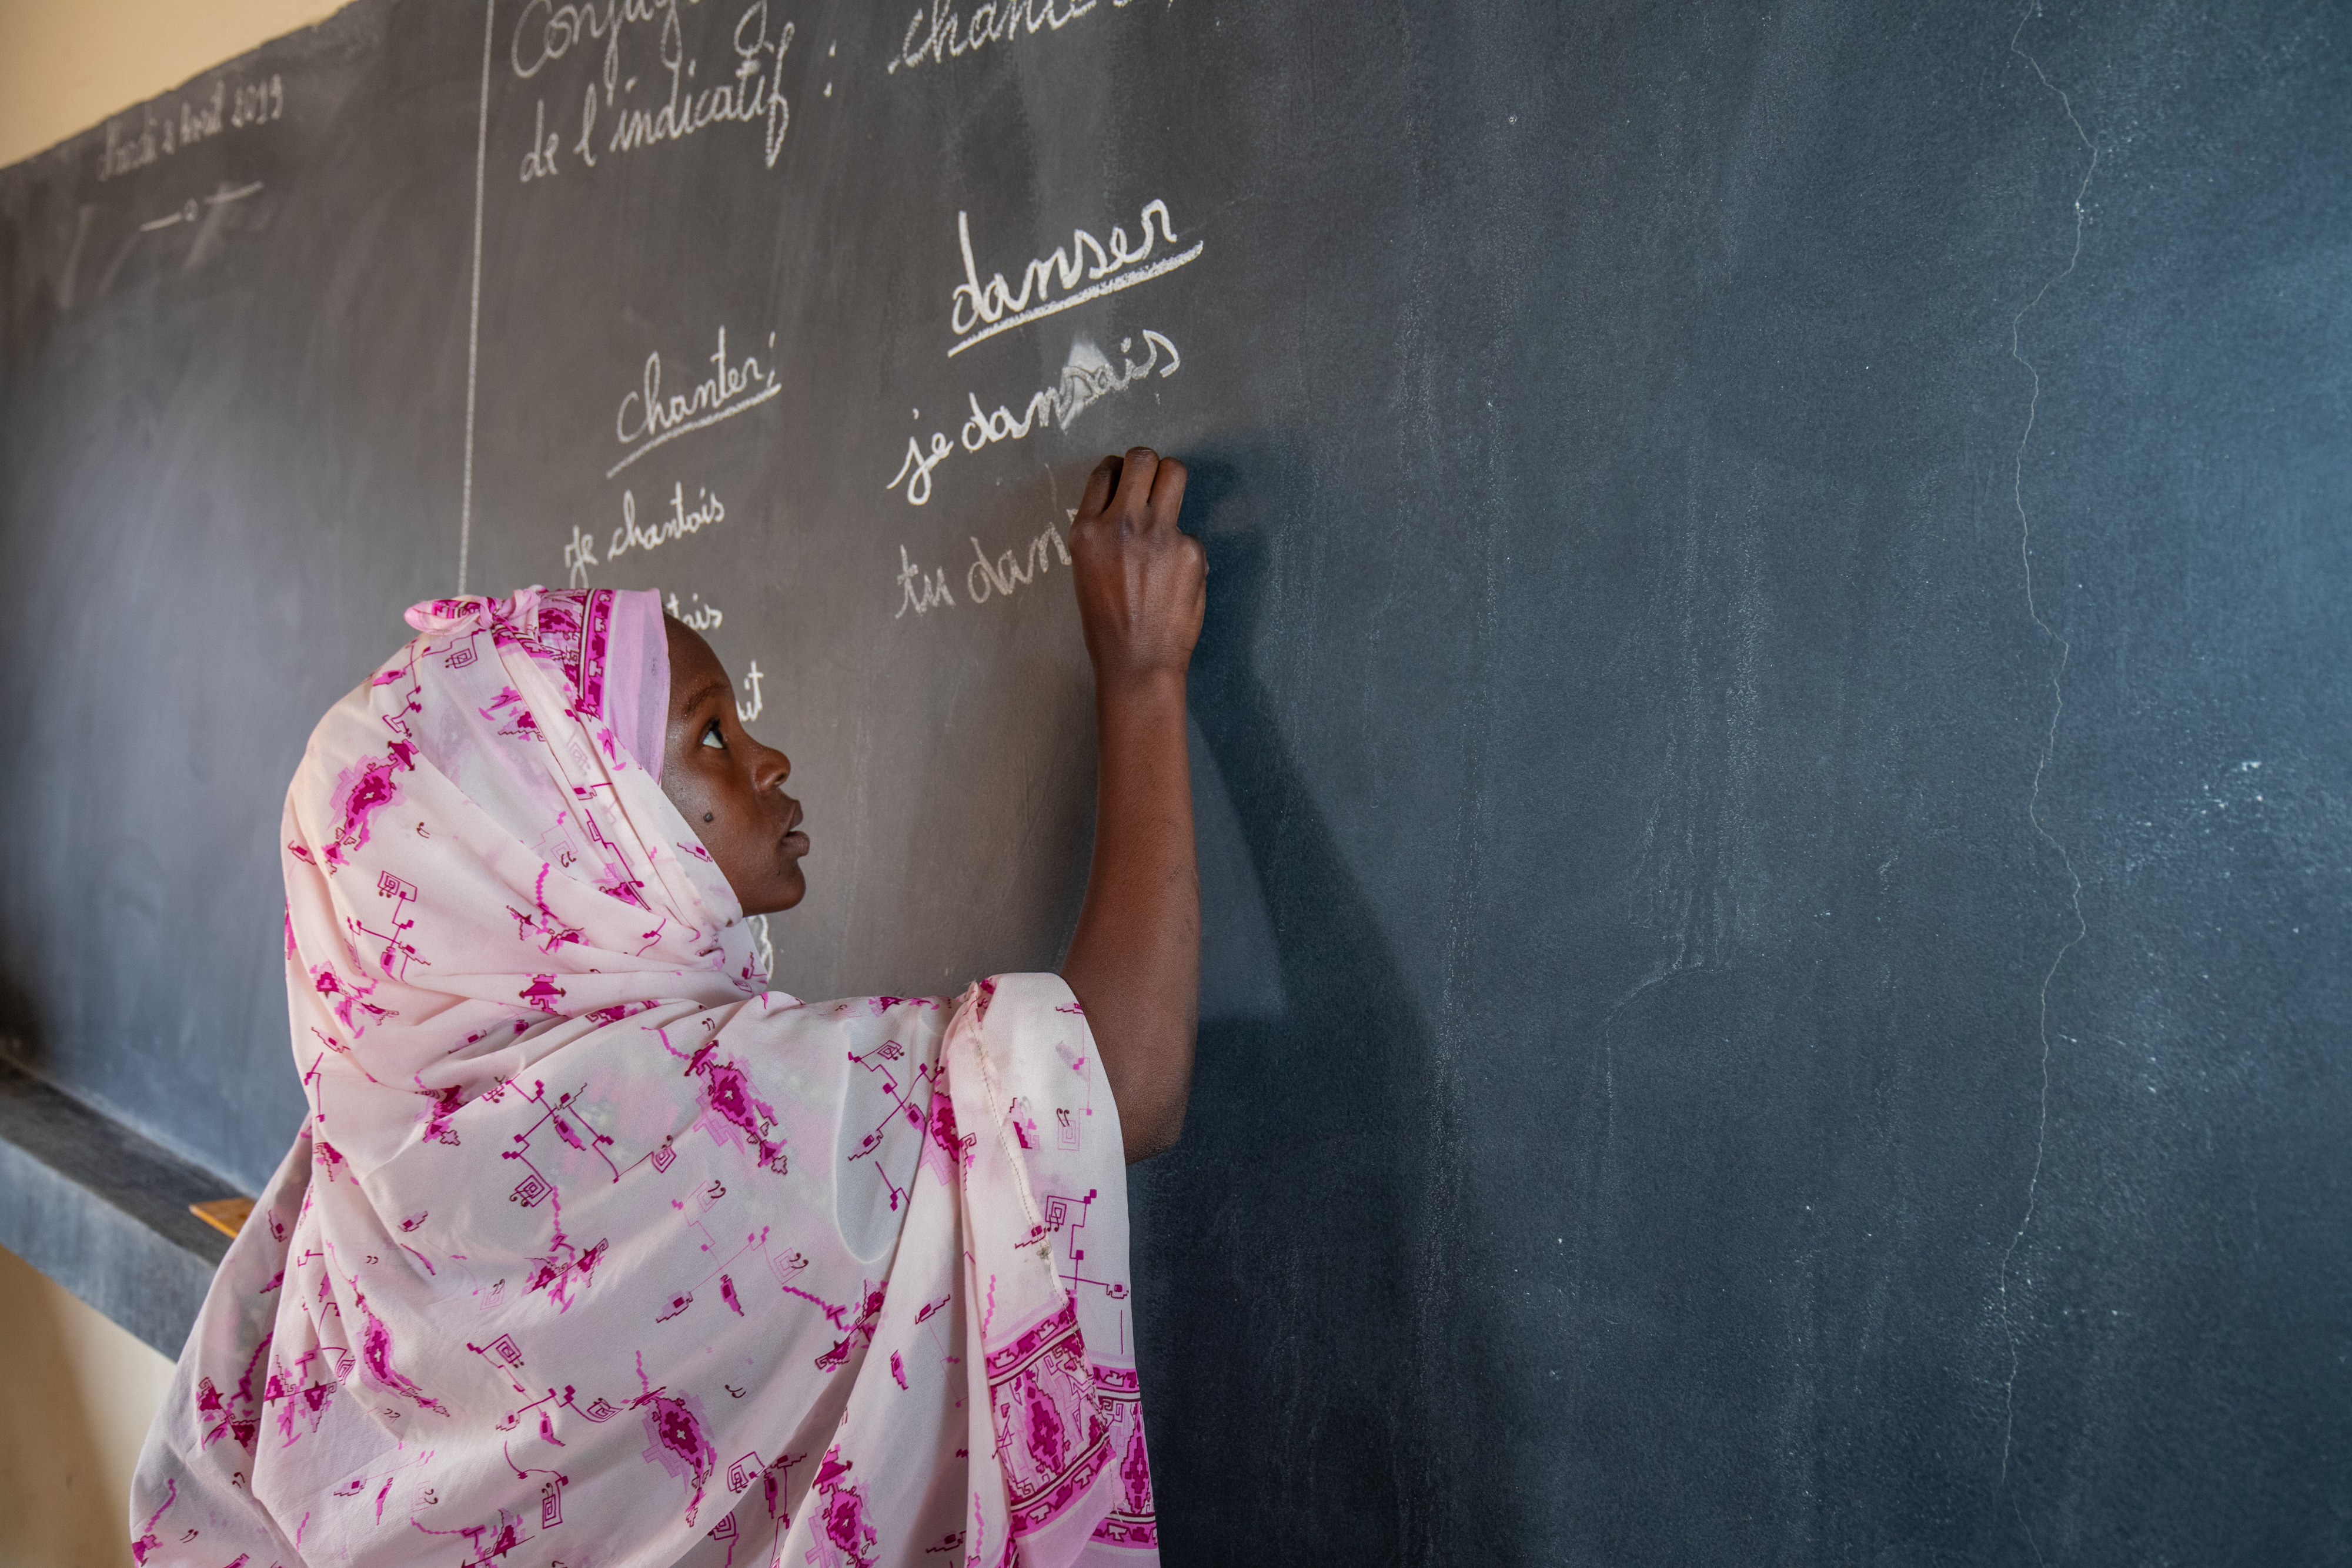 Mardi 2 Avril 2019
de l'indicatif :
danser
chanter :
je dansais
je chantais
tu dans